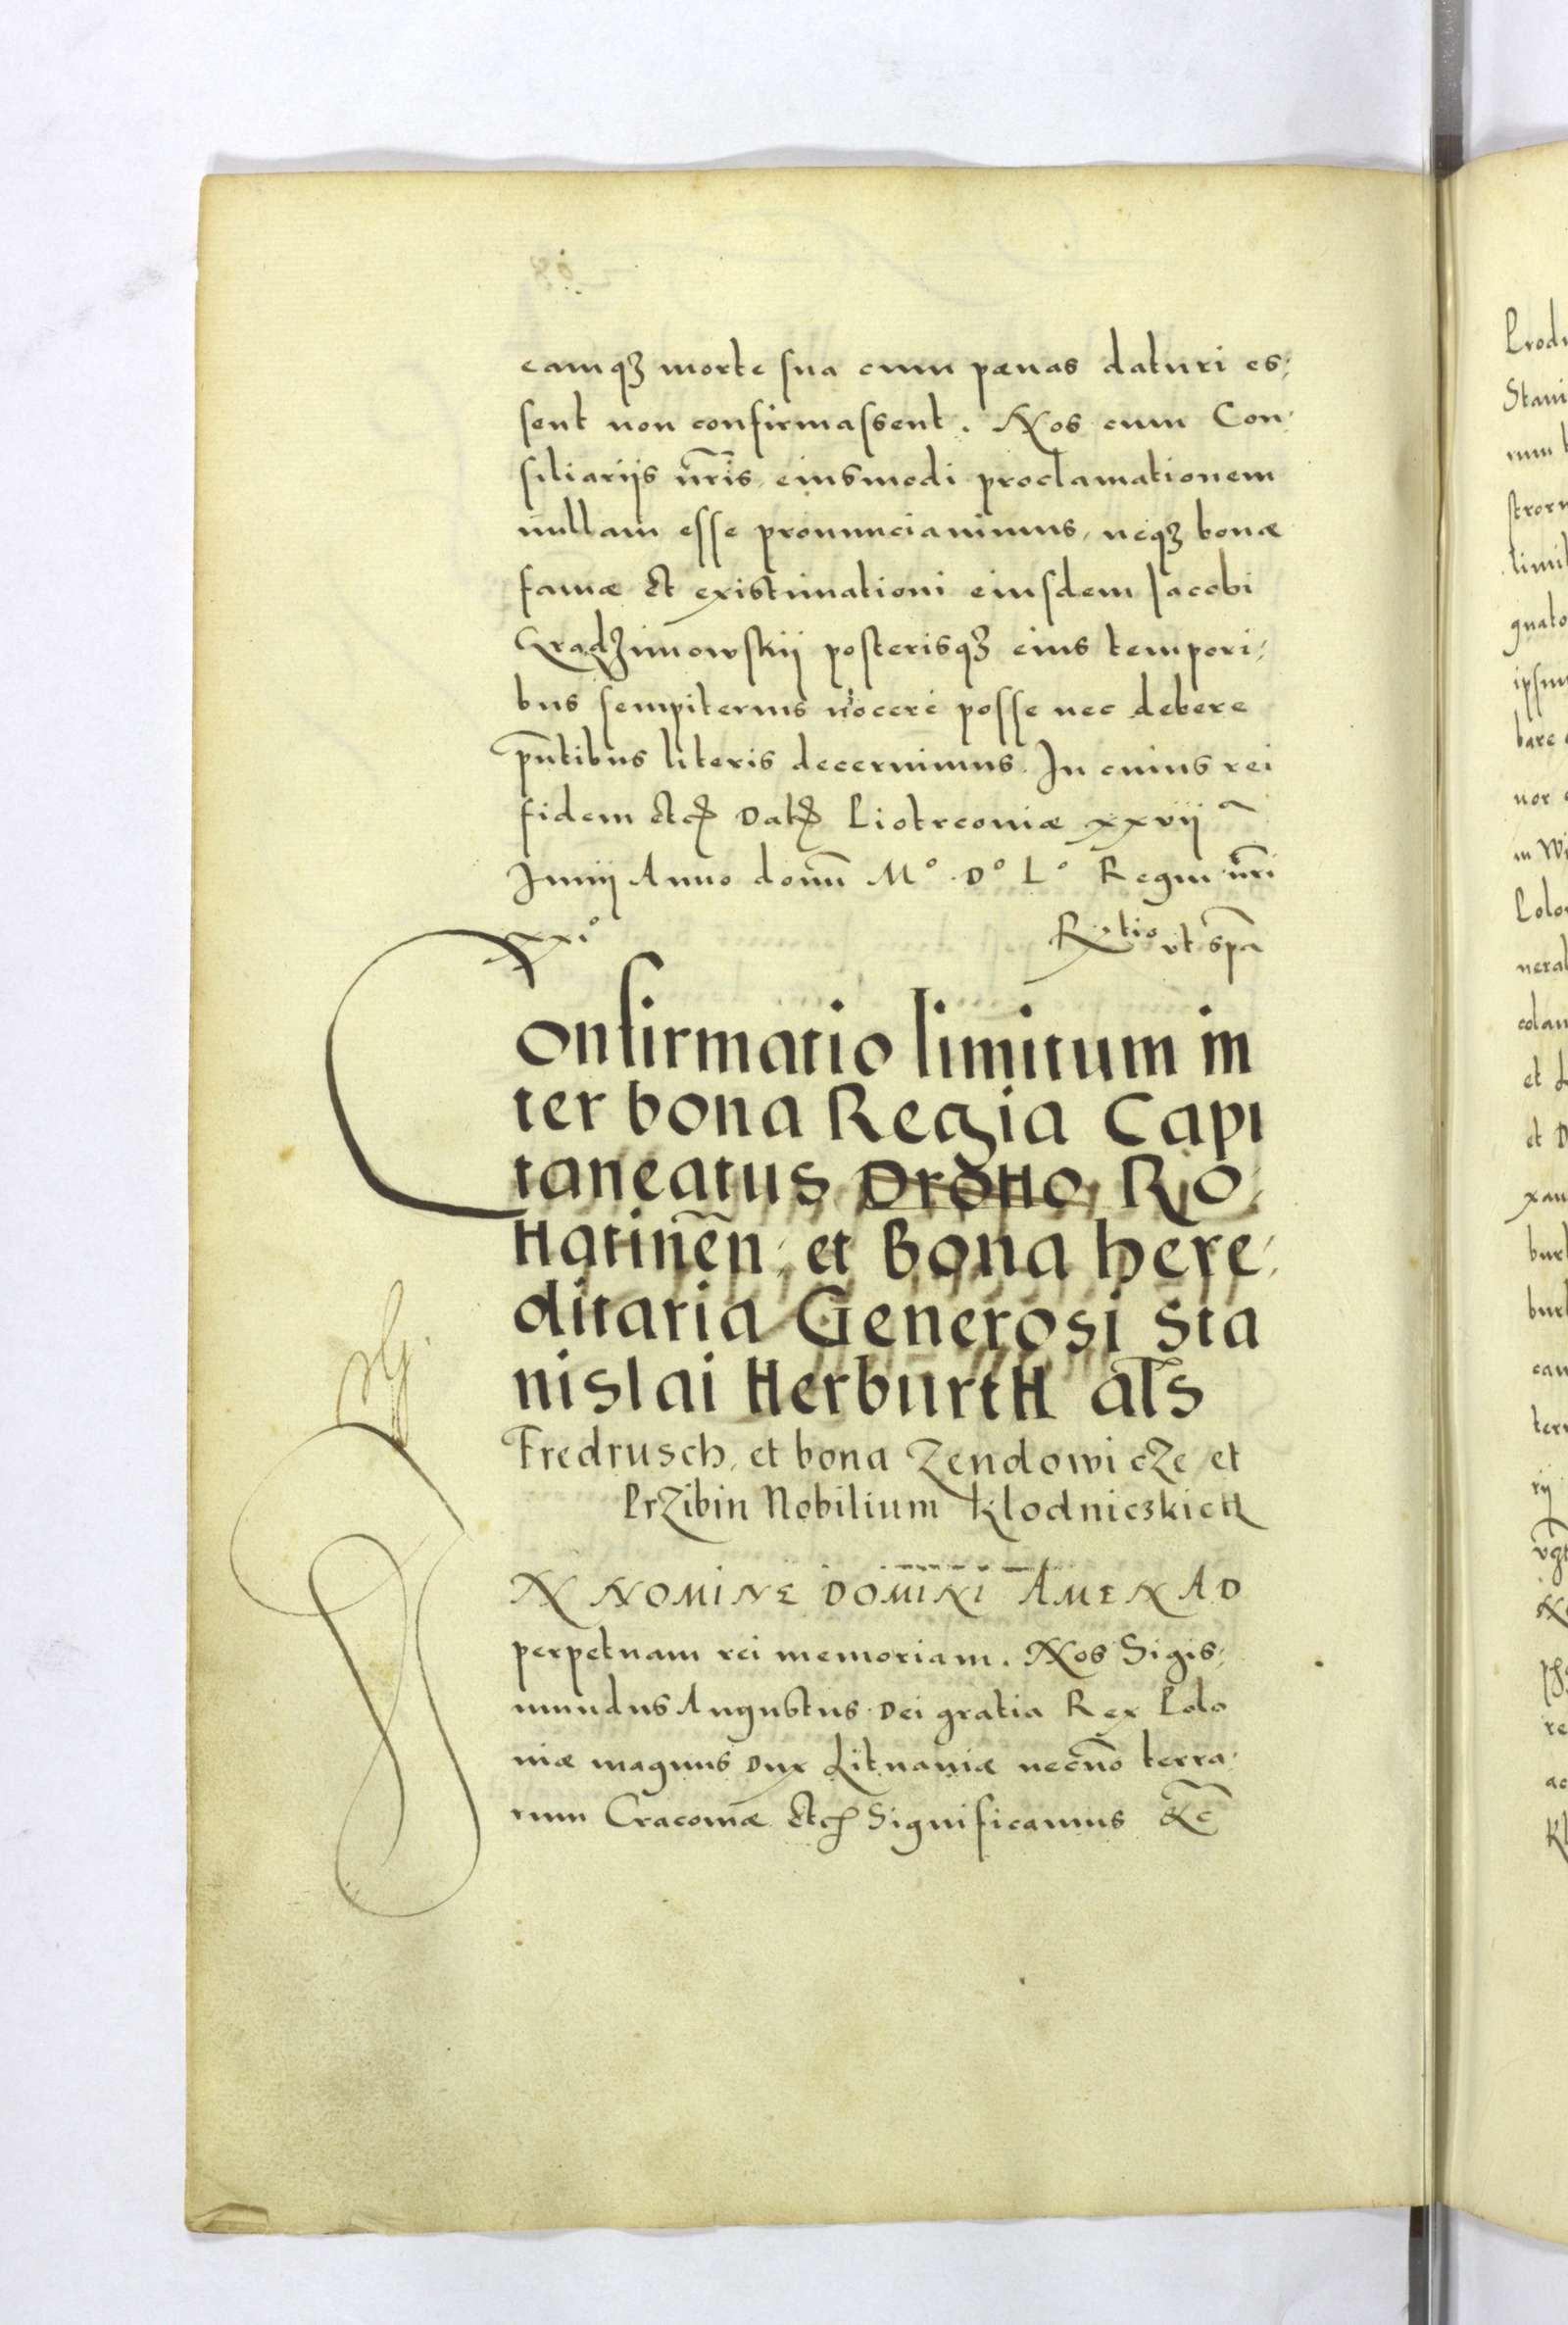 eamqȝ morte sua cum pænas daturi es:
sent non confirmassent. Nos cum Con:
siliarijs nr̃is eiusmodi proclamationem
nullam esse pronunciauimus, neqȝ bonæ
famæ et existimationi eiusdem Jacobi
Gradzimowskij posterisqȝ eius tempori:
bus sempiternis nocere posse nec debere
pn̄tibus literis decernimus. In cuius rei
fidem etc Dat Piotrcouiæ xxvij a
Junij Anno domī Mº. Dº Lº Regni nr̃i
xxiº R-tio ut spā
Confirmatio limitum in
ter bona Regia Capi
taneatus Droho, Ro:
Hatineñ: et Bona here:
ditaria Generosi Sta
nislai HerburtH al̄s
Fredrusch, et bona Zendowicze et
Przibin Nobilium KlodniczkicH
IN NOMINE DOMINI AMEN AD
perpetuam rei memoriam. Nos Sigis:
mundus Augustus Dei gratia Rex Polo
niæ magnus Dux Lituaniæ necnō terra:
rum Cracouiæ etc Significamus &c̄